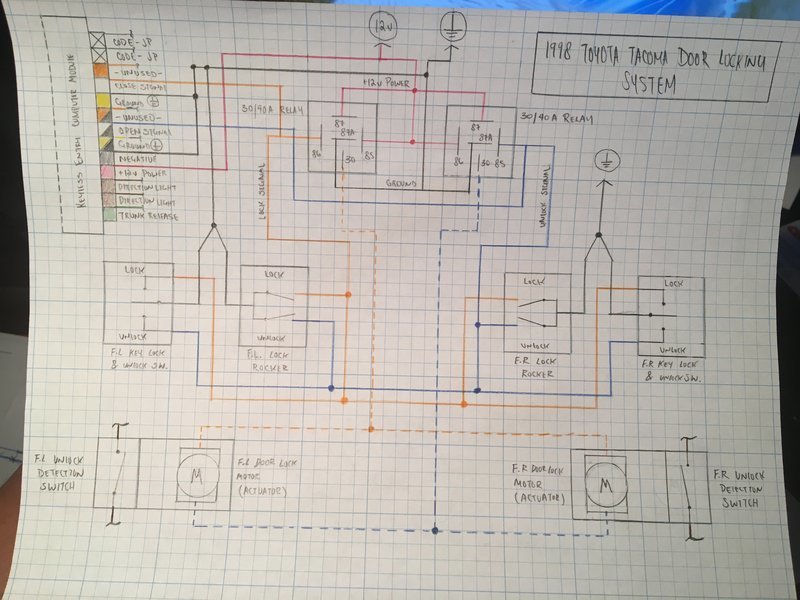 12V
1998 TOYOTA TACOMA DOOR LOCKING
SYSTEM
KEYLESS ENTRY COMPUTER MODULE
CODE-JP
CODE-JP
-UNUSED-
CLOSE SIGNAL
GROUND
-UNUSED-
OPEN SIGNAL
GROUND
NEGATIVE
+12V POWER
DIRECTION LIGHT
DIRECTION LIGHT
TRUNK RELEASE
+12V POWER
30/40A RELAY
87
87A
86
30
85
30/40A RELAY
87
87A
86
30
85
GROUND
LOCK SIGNAL
UNLOCK SIGNAL
LOCK
UNLOCK
F.L KEY LOCK
& UNLOCK SW.
LOCK
UNLOCK
F.L. LOCK
ROCKER
LOCK
UNLOCK
F.R LOCK
ROCKER
LOCK
UNLOCK
F.R KEY LOCK
& UNLOCK SW.
F.L UNLOCK
DETECTION
SWITCH
M
F.L DOOR LOCK
MOTOR
(ACTUATOR)
F.R DOOR LOCK
MOTOR
(ACTUATOR)
M
F.R UNLOCK
DETECTION
SWITCH